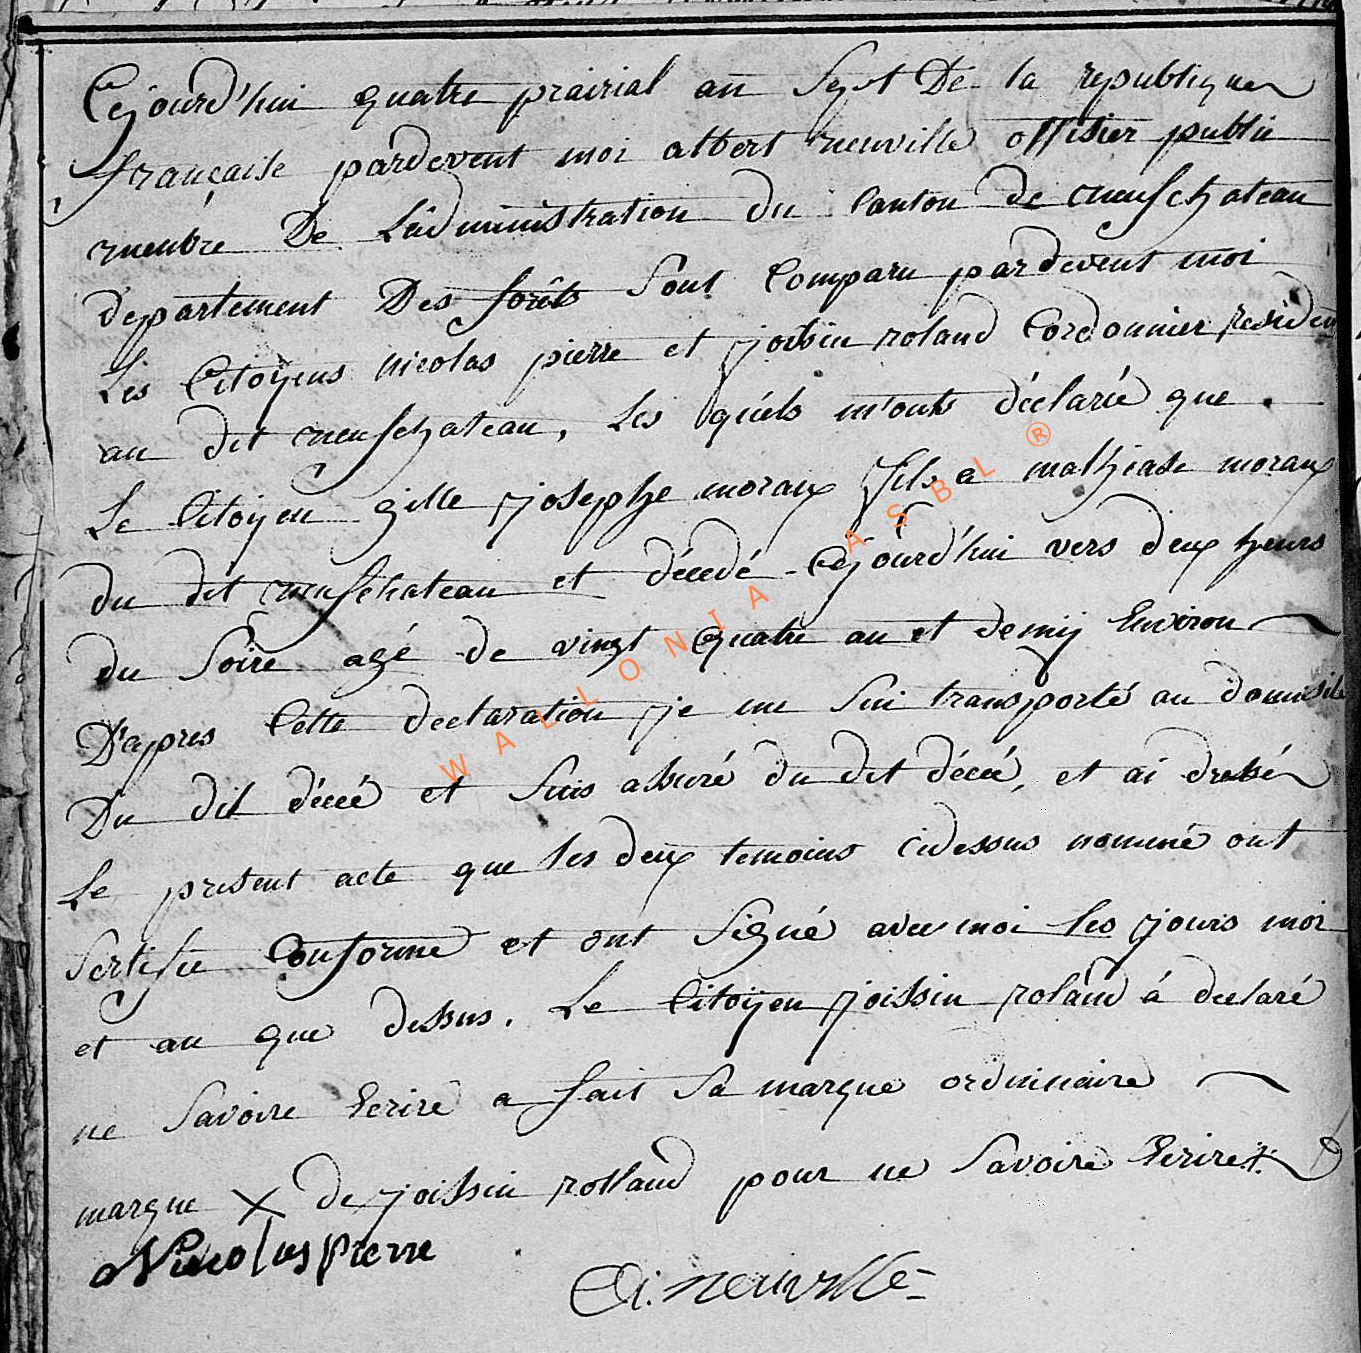 Cejourd'hui quatre prairial an Sept De la republique
française pardevent moi albert neuville offisier public
menbre De L'administration du Canton de neufchateau
departement Des forêts Sont Comparu pardevent moi
Les Citoÿens nicolas pierre et joissin roland Cordonnier resident
au dit neufchateau, Les quéls m'onts déclarié que
Le Citoÿen gille josephe moraux fils a mathiase moraux
du dit neufchateau et décedé Cejourd'hui vers deux heurs
du Soire agé de vingt quatre an et demij Environ
D'apres Cette declaration je me Sui transporté au domisile
Du dit décé et Suis assuré du dit décé, et ai dressé
Le present acte que les deux temoins cidessus nommé ont
Sertifie Conforme et ont Signé avec moi les jours moi
et an que dessus. Le Citoÿen joissin roland á declaré
ne Savoire Ecrire a fait Sa marque ordinnaire
marque X de joissin rolland pour ne Savoire Ecrire
Nicolas pierre
A. neuville
WALLONIA ASBL ®